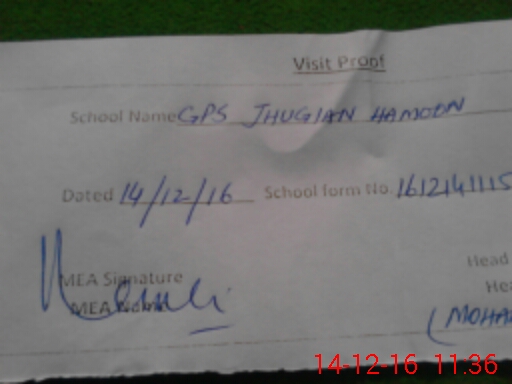 Visit Proof
School Name GPS JHUGIAN HAMOON
Dated 14/12/16 School form No. 1612141115
Head
MEA Signature
Hea
MEA Name
(MOHA
14-12-16 11:36